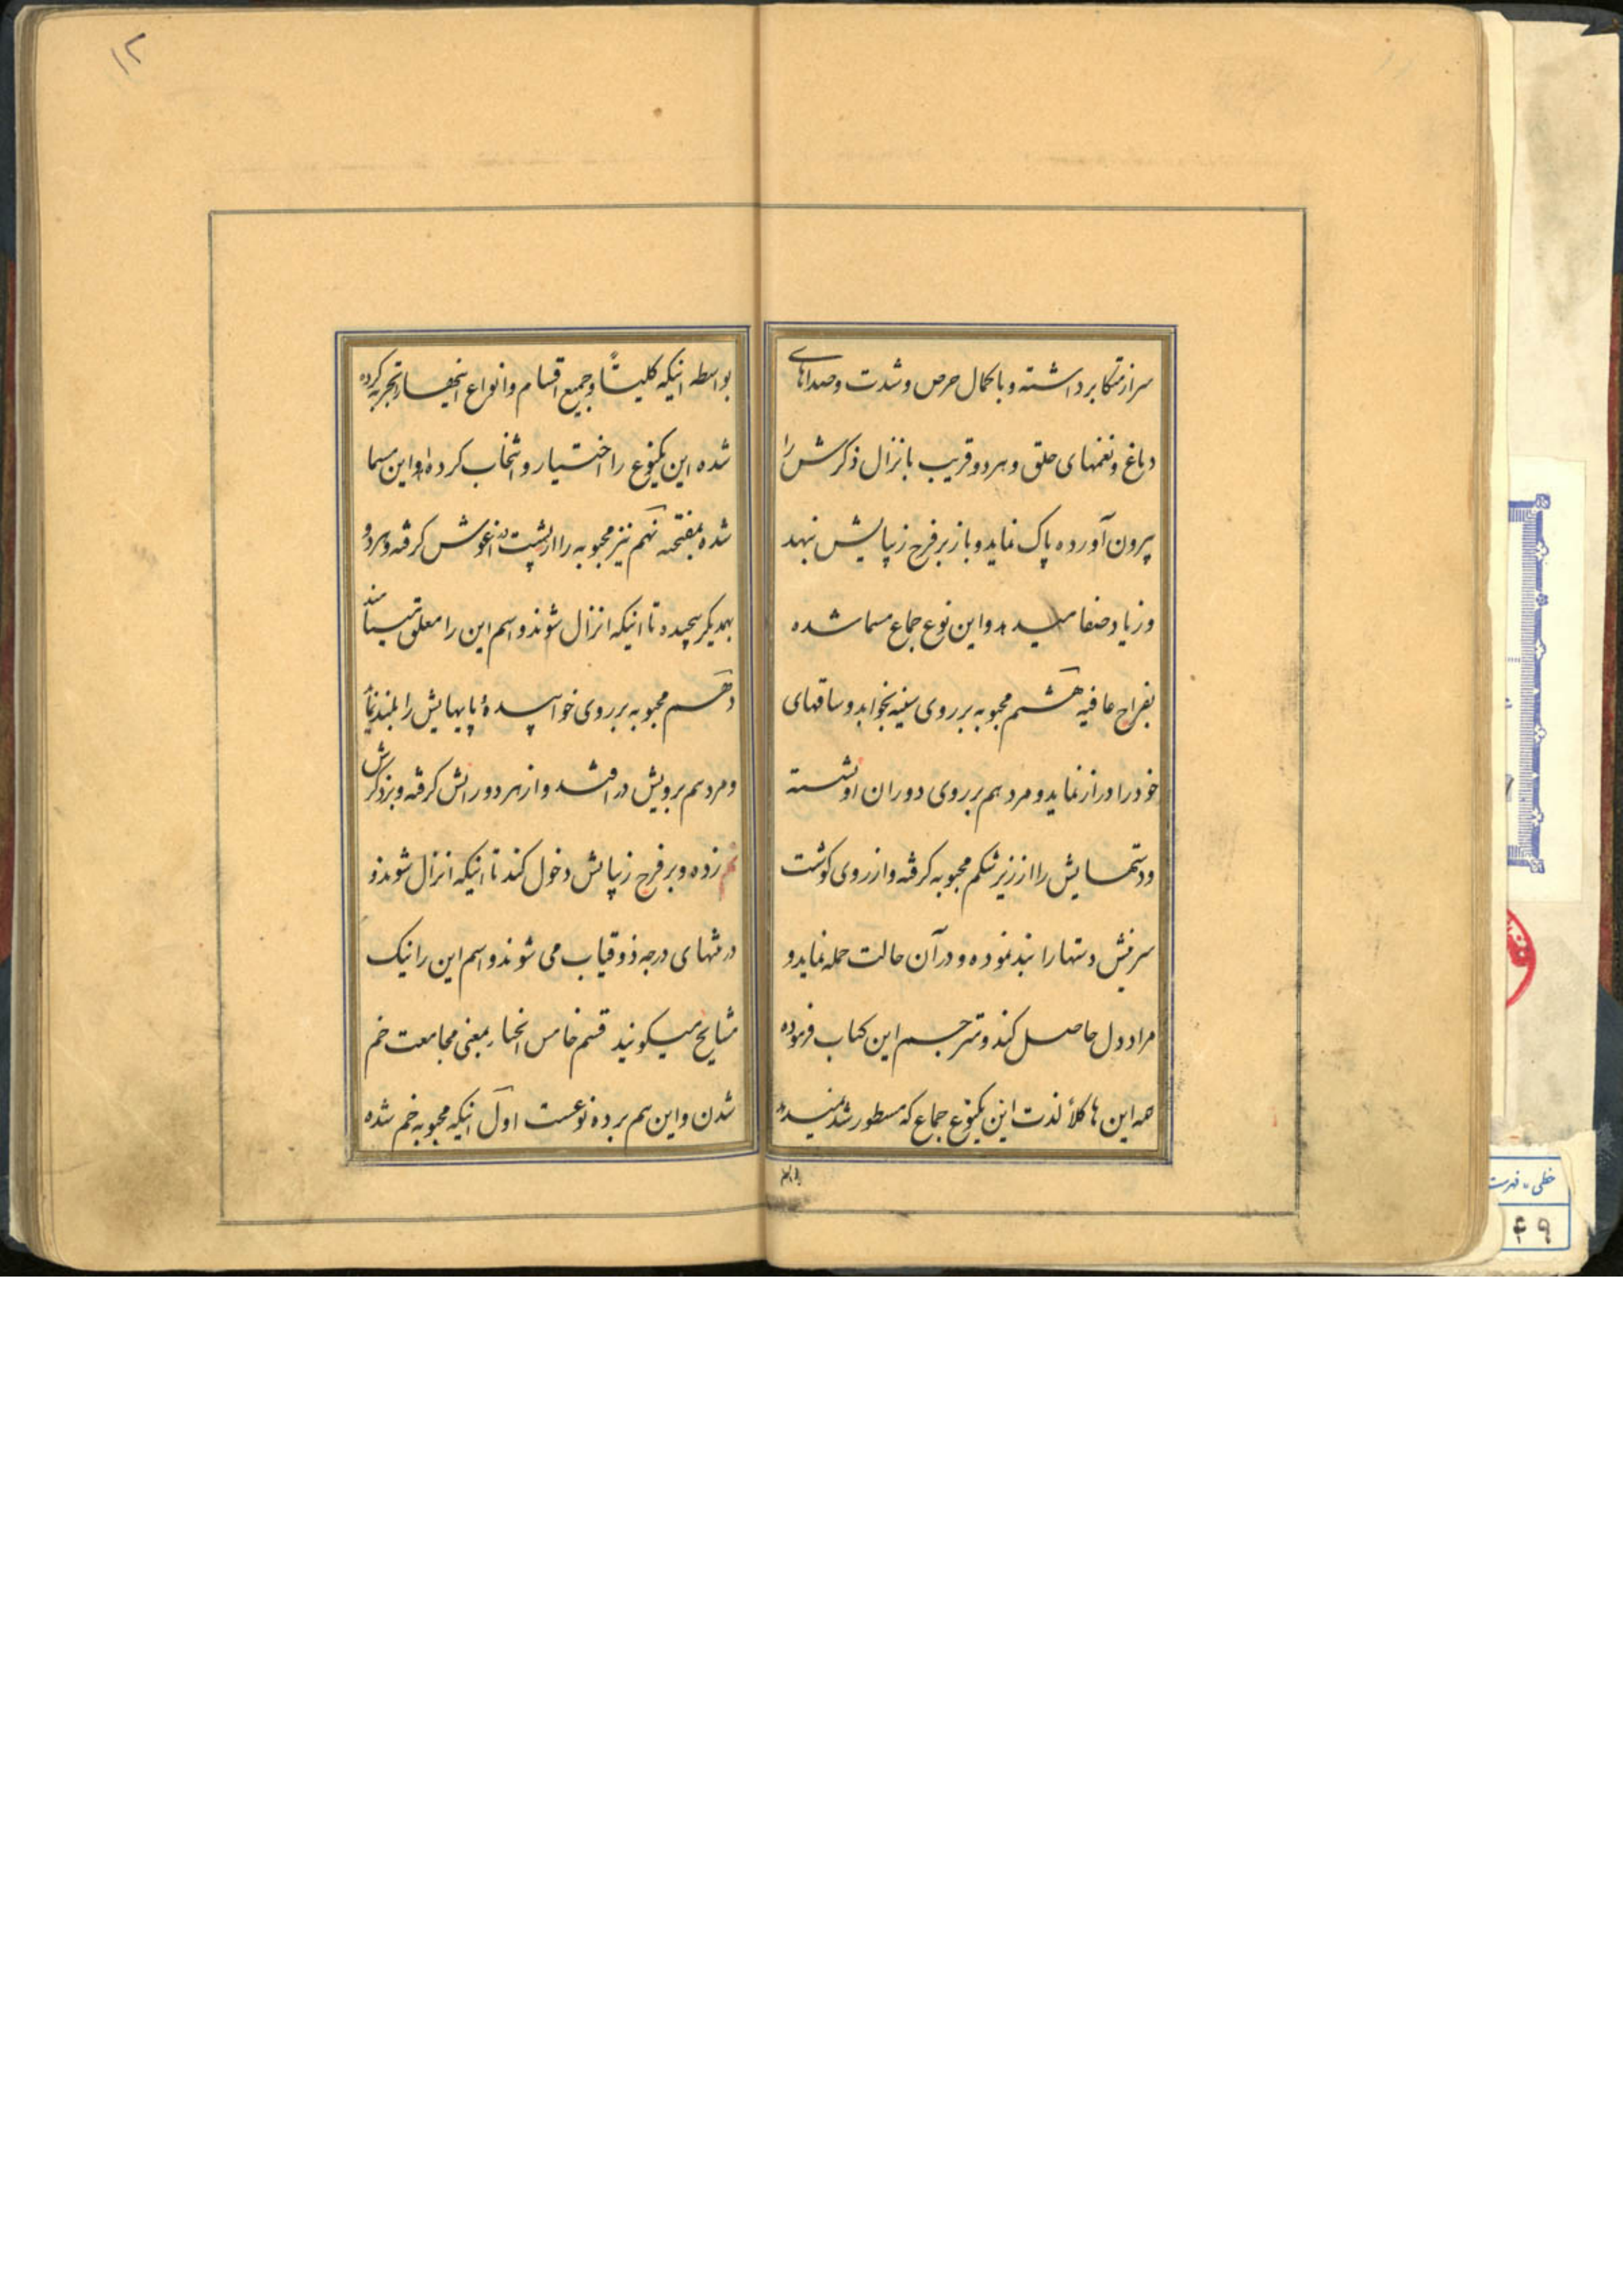 سر از متکا برداشته و با کمال حرص و شدت و صداهای
دماغ و نغمهای حلق و هر دو قریب بانزال ذکرش را
بیرون آورده پاک نماید و باز بر فرج زیبایش نهد
و زیاد صفا میدهد و این نوع جماع مسما شده
بفراج عافیه هشتم محبوبه بر روی سینه بخوابد و ساقهای
خود را دراز نماید و مرد هم بر روی دو ران او نشسته
و دستهایش را از زیر شکم محبوبه گرفته و از روی گوشت
سرینش دستها را بند نموده و در آن حالت حمله نماید و
مراد دل حاصل کند و مترجم این کتاب فرموده
همه این ها کلاً لذت این یکنوع جماع که مسطور شد
بواسطه
بواسطه اینکه کلیتاً و جمیع اقسام و انواع اینها را تجربه کرده
شده این یکنوع را اختیار و انتخاب کرده‌ام و این مسما
شده نهم نیز محبوبه را از پشت در آغوش گرفته و هر دو
بهمدیگر پیچیده تا اینکه انزال شوند و اسم این را معلق مینامند
دهم محبوبه بر روی خوابیده پایهایش را بلند نماید
و مرد هم برویش در افتد و از هر دو رانش گرفته و بر ذکرش
زده و بر فرج زیبایش دخول کند تا اینکه انزال شوند و
در منتهای درجه ذوقیاب می شوند و اسم این را نیک
مشایخ میگویند قسم خامس انحنا بمعنی مجامعت خم
شدن و این هم بر ده نوعست اول اینکه محبوبه خم شده
۱۲
خطی . فهرست
۴۹